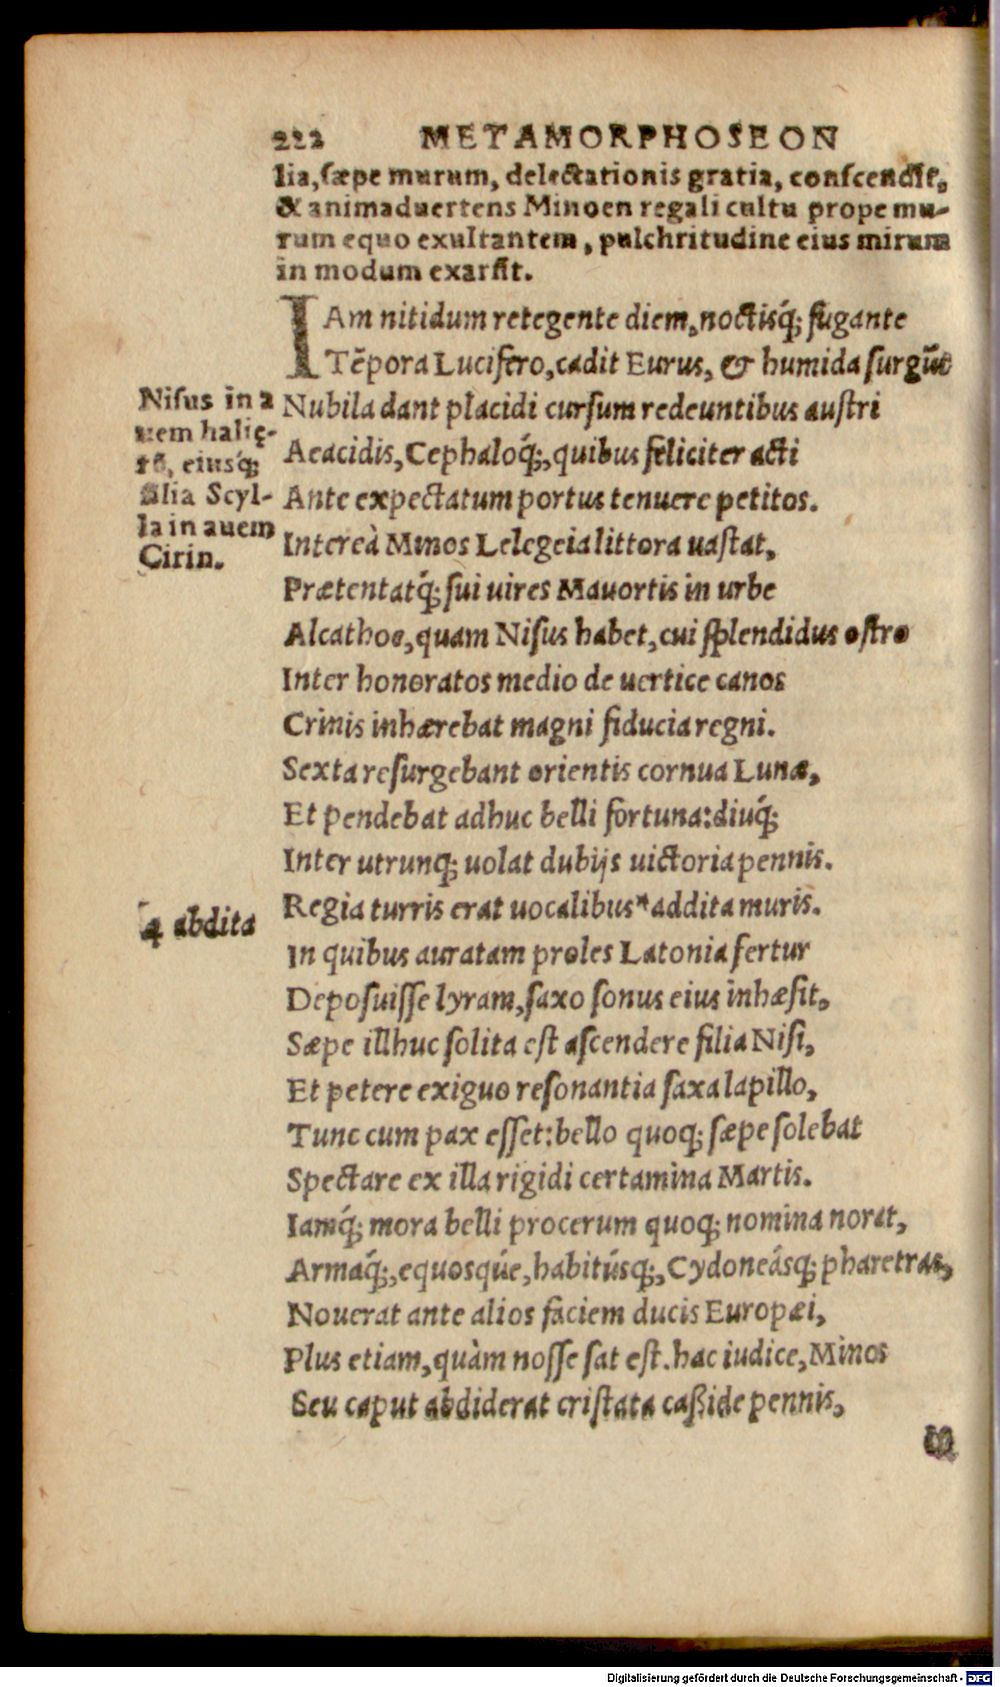 222 METAMORPHOSEON
lia, sæpe murum, delectationis gratia, conscendit,
& animaduertens Minoen regali cultu prope mu-
rum equo exultantem, pulchritudine eius mirum
in modum exarsit.
IAm nitidum retegente diem, noctisq́; fugante
Tẽpora Lucifero, cadit Eurus, & humida surgũt
Nubila dant placidi cursum redeuntibus austri
Aeacidis, Cephaloq́;, quibus feliciter acti
Ante expectatum portus tenuere petitos.
Intereà Minos Lelegeia littora uastat,
Prætentatq́; sui uires Mauortis in urbe
Alcathoe, quam Nisus habet, cui splendidus ostro
Inter honoratos medio de uertice canos
Crinis inhærebat magni fiducia regni.
Sexta resurgebant orientis cornua Lunæ,
Et pendebat adhuc belli fortuna: diuq́;
Inter utrunq; uolat dubijs uictoria pennis.
Regia turris erat uocalibus* addita muris.
In quibus auratam proles Latonia fertur
Deposuisse lyram, saxo sonus eius inhæsit,
Sæpe illhuc solita est ascendere filia Nisi,
Et petere exiguo resonantia saxa lapillo,
Tunc cum pax esset: bello quoq; sæpe solebat
Spectare ex illa rigidi certamina Martis.
Iamq́; mora belli procerum quoq; nomina norat,
Armaq́;, equosqúe, habitúsq;, Cydoneásq; pharetras,
Nouerat ante alios faciem ducis Europæi,
Plus etiam, quàm nosse sat est. hac iudice, Minos
Seu caput abdiderat cristata casside pennis,
Nisus in a
uem halię-
tũ, eiusq́;
filia Scyl-
la in auem
Cirin.
4 abdita